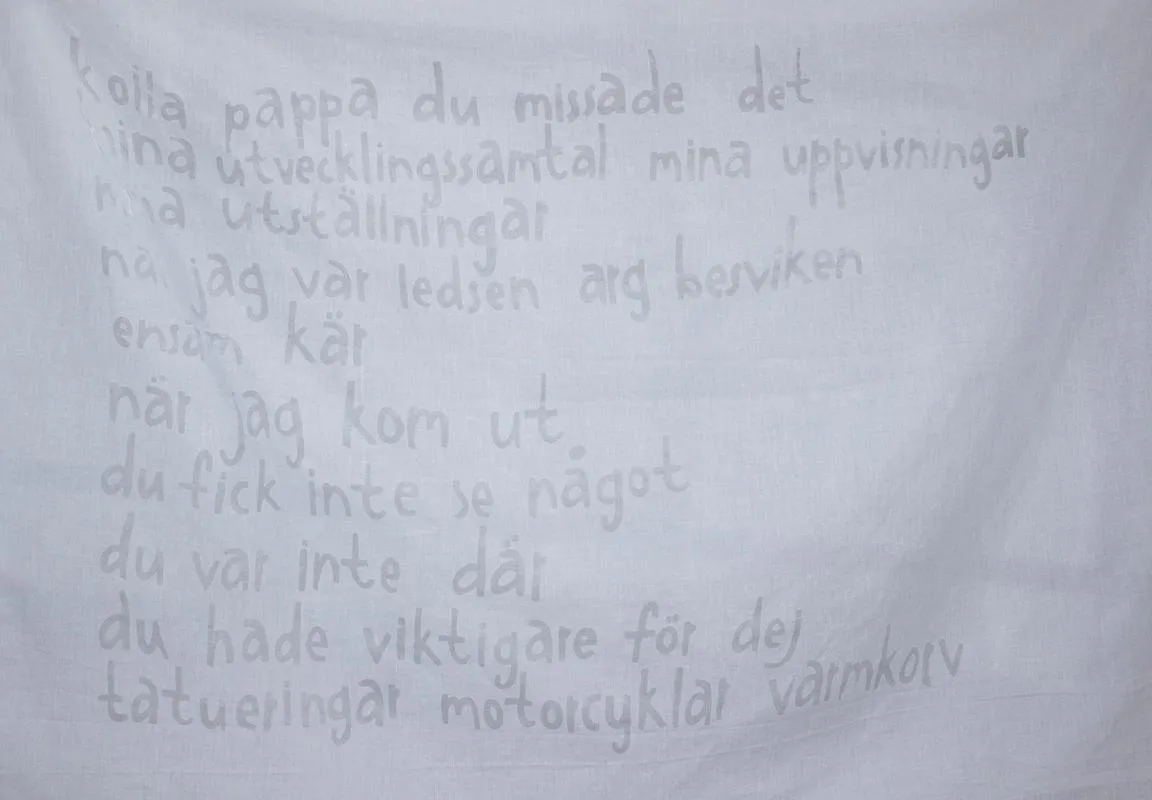 kolla pappa du missade det
mina utvecklingssamtal mina uppvisningar
mina utställningar
när jag var ledsen arg besviken
ensam kär
när jag kom ut
du fick inte se något
du var inte där
du hade viktigare för dej
tatueringar motorcyklar varmkorv